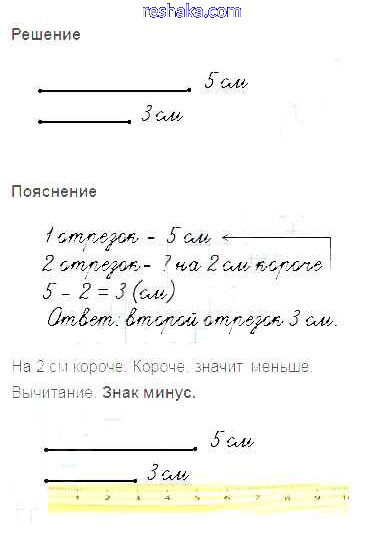 reshaka.com
Решение
5 см
3 см
Пояснение
1 отрезок – 5 см
2 отрезок – ? на 2 см короче
5 – 2 = 3 (см)
Ответ: второй отрезок 3 см.
На 2 см короче. Короче, значит меньше.
Вычитание. Знак минус.
5 см
3 см
1 2 3 4 5 6 7 8 9